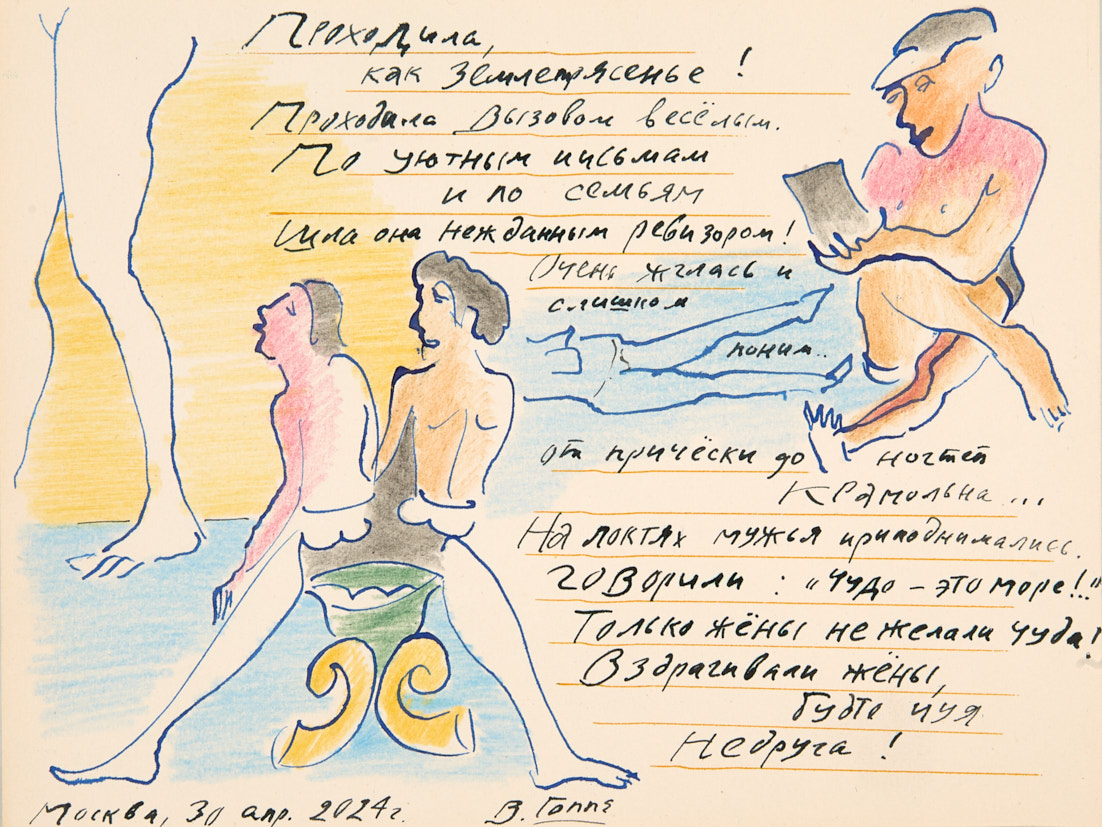 Проходила,
как землетрясенье!
Проходила вызовом весёлым.
По уютным письмам
и по семьям
Шла она нежданным ревизором!
Очень жглась и
слишком
поним..
от причёски до ногтей
Крамольна...
На локтях мужья приподнимались.
говорили: "Чудо – это море!!"
Только жёны не желали чуда!
Вздрагивали жёны,
будто чуя
Недруга!
Москва, 30 апр. 2024г. В. Гоппе